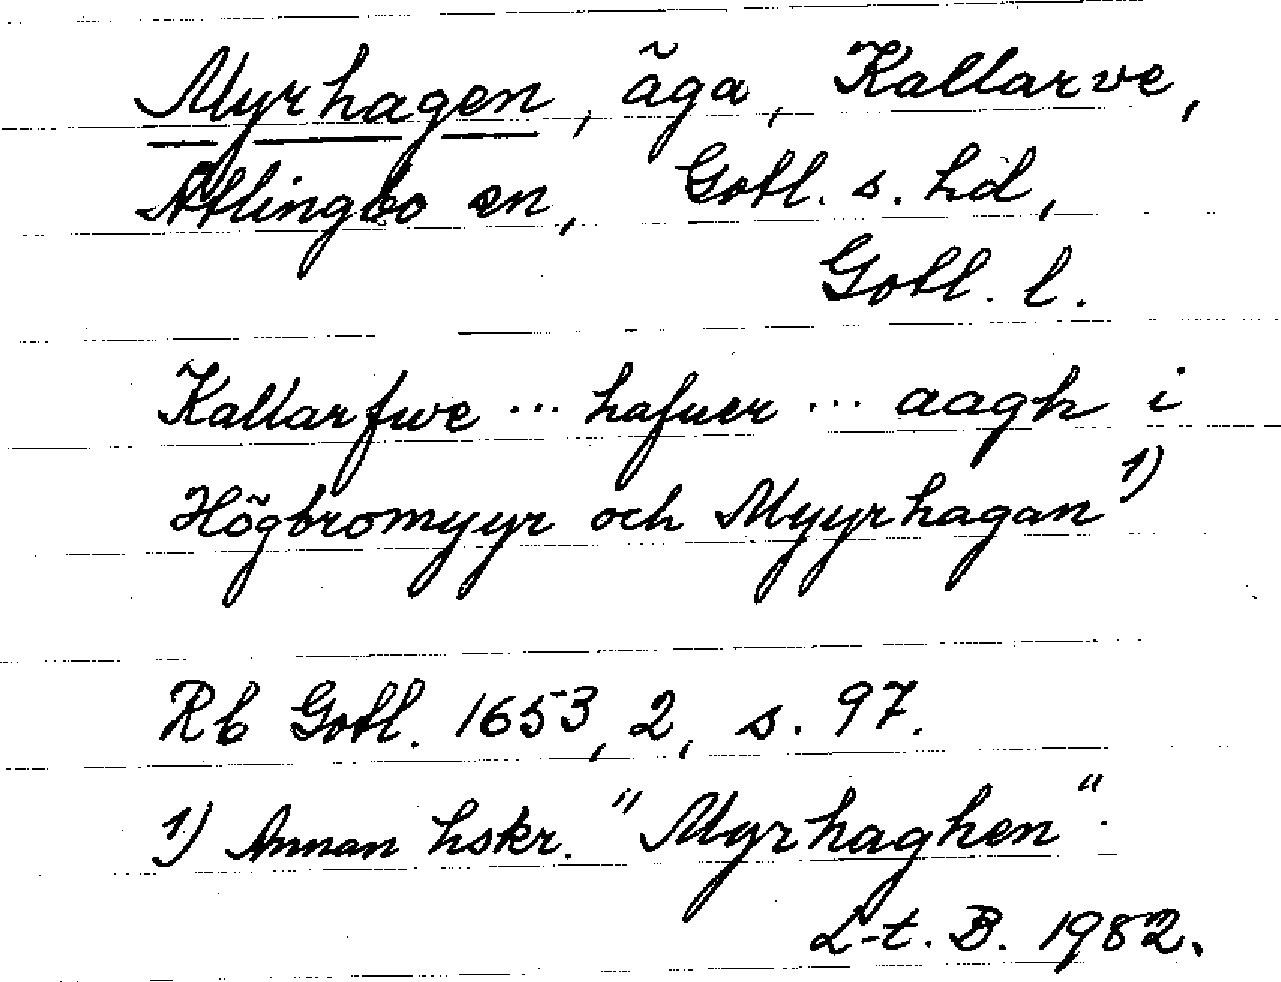 Myrhagen, äga, Kallarve,
Atlingbo sn, Gotl. s. hd,
Gotl. l.
Kallarfwe ... hafuer ... aagh i
Högbromyyr och Myyrhagan 1)
Rb Gotl. 1653, 2, s. 97.
1) Annan hskr. "Myrhaghen".
L-t. B. 1982.